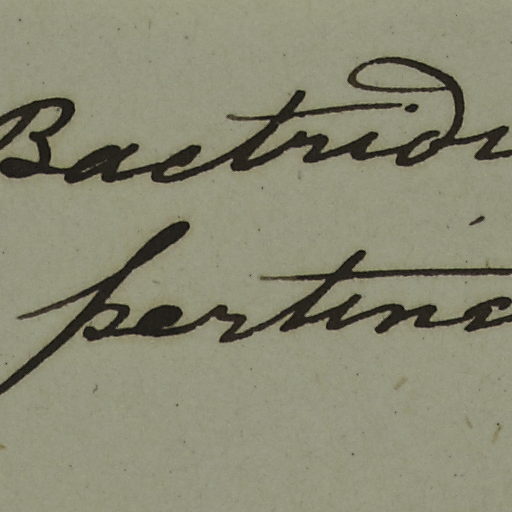 Bactridi
pertina